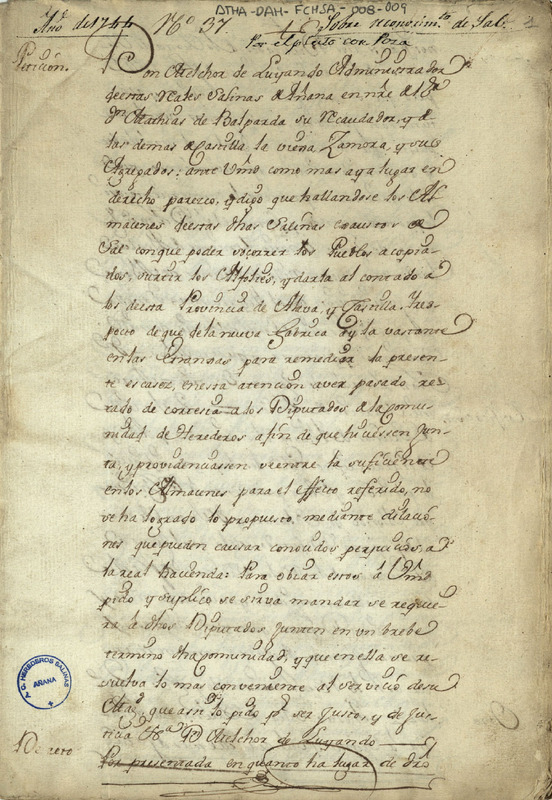 ATHA-DAH-FCHSA-008-009
Año de 1744 Nº 37 Sobre reconocimto de Sal
Por el pleito con Poza
Peticion.
Don Melchor de Luyando Administrador
destas Reales Salinas de Añana en nre de
Dn Mathias de Balparda su Recaudador, y de
las demas de Castilla la vieja Zamora, y sus
Agregados: ante Vmd como mas aya lugar en
derecho parezco, y digo que hallandose los Al
macenes destas dhas Salinas exaustos de
Sal con que poder socorrer los Pueblos acopia
dos, surtir los Alfolies, y darla al contado a
los desta Provincia de Alava, y Castilla. Res
pecto de que de la nueva fabrica ay la vastante
en las Granjas para remediar la presen
te escasez, en esta atencion aver pasado re
cado de cortesia a los Diputados de la comu
nidad de Herederos a fin de que hiciessen Jun
ta, y providenciassen se entre la suficiente
en los Almacenes para el effecto referido, no
se ha logrado lo propuesto, mediante dilacio
nes que pueden causar conocidos perjuicios, a
la real hacienda: Para obiar estos a Vmd
pido y suplico se sirva mandar se requie
ra a dhos Diputados junten en un brebe
termino dha comunidad, y que en ella se re
suelva lo mas conveniente al servicio de su
Magd, que asi lo pido pr ser Justo, y de Jus
ticia Dn Melchor de Luyando
Decreto
Por presentada en quanto ha lugar de dro
C. G. HEREDEROS SALINAS
AÑANA